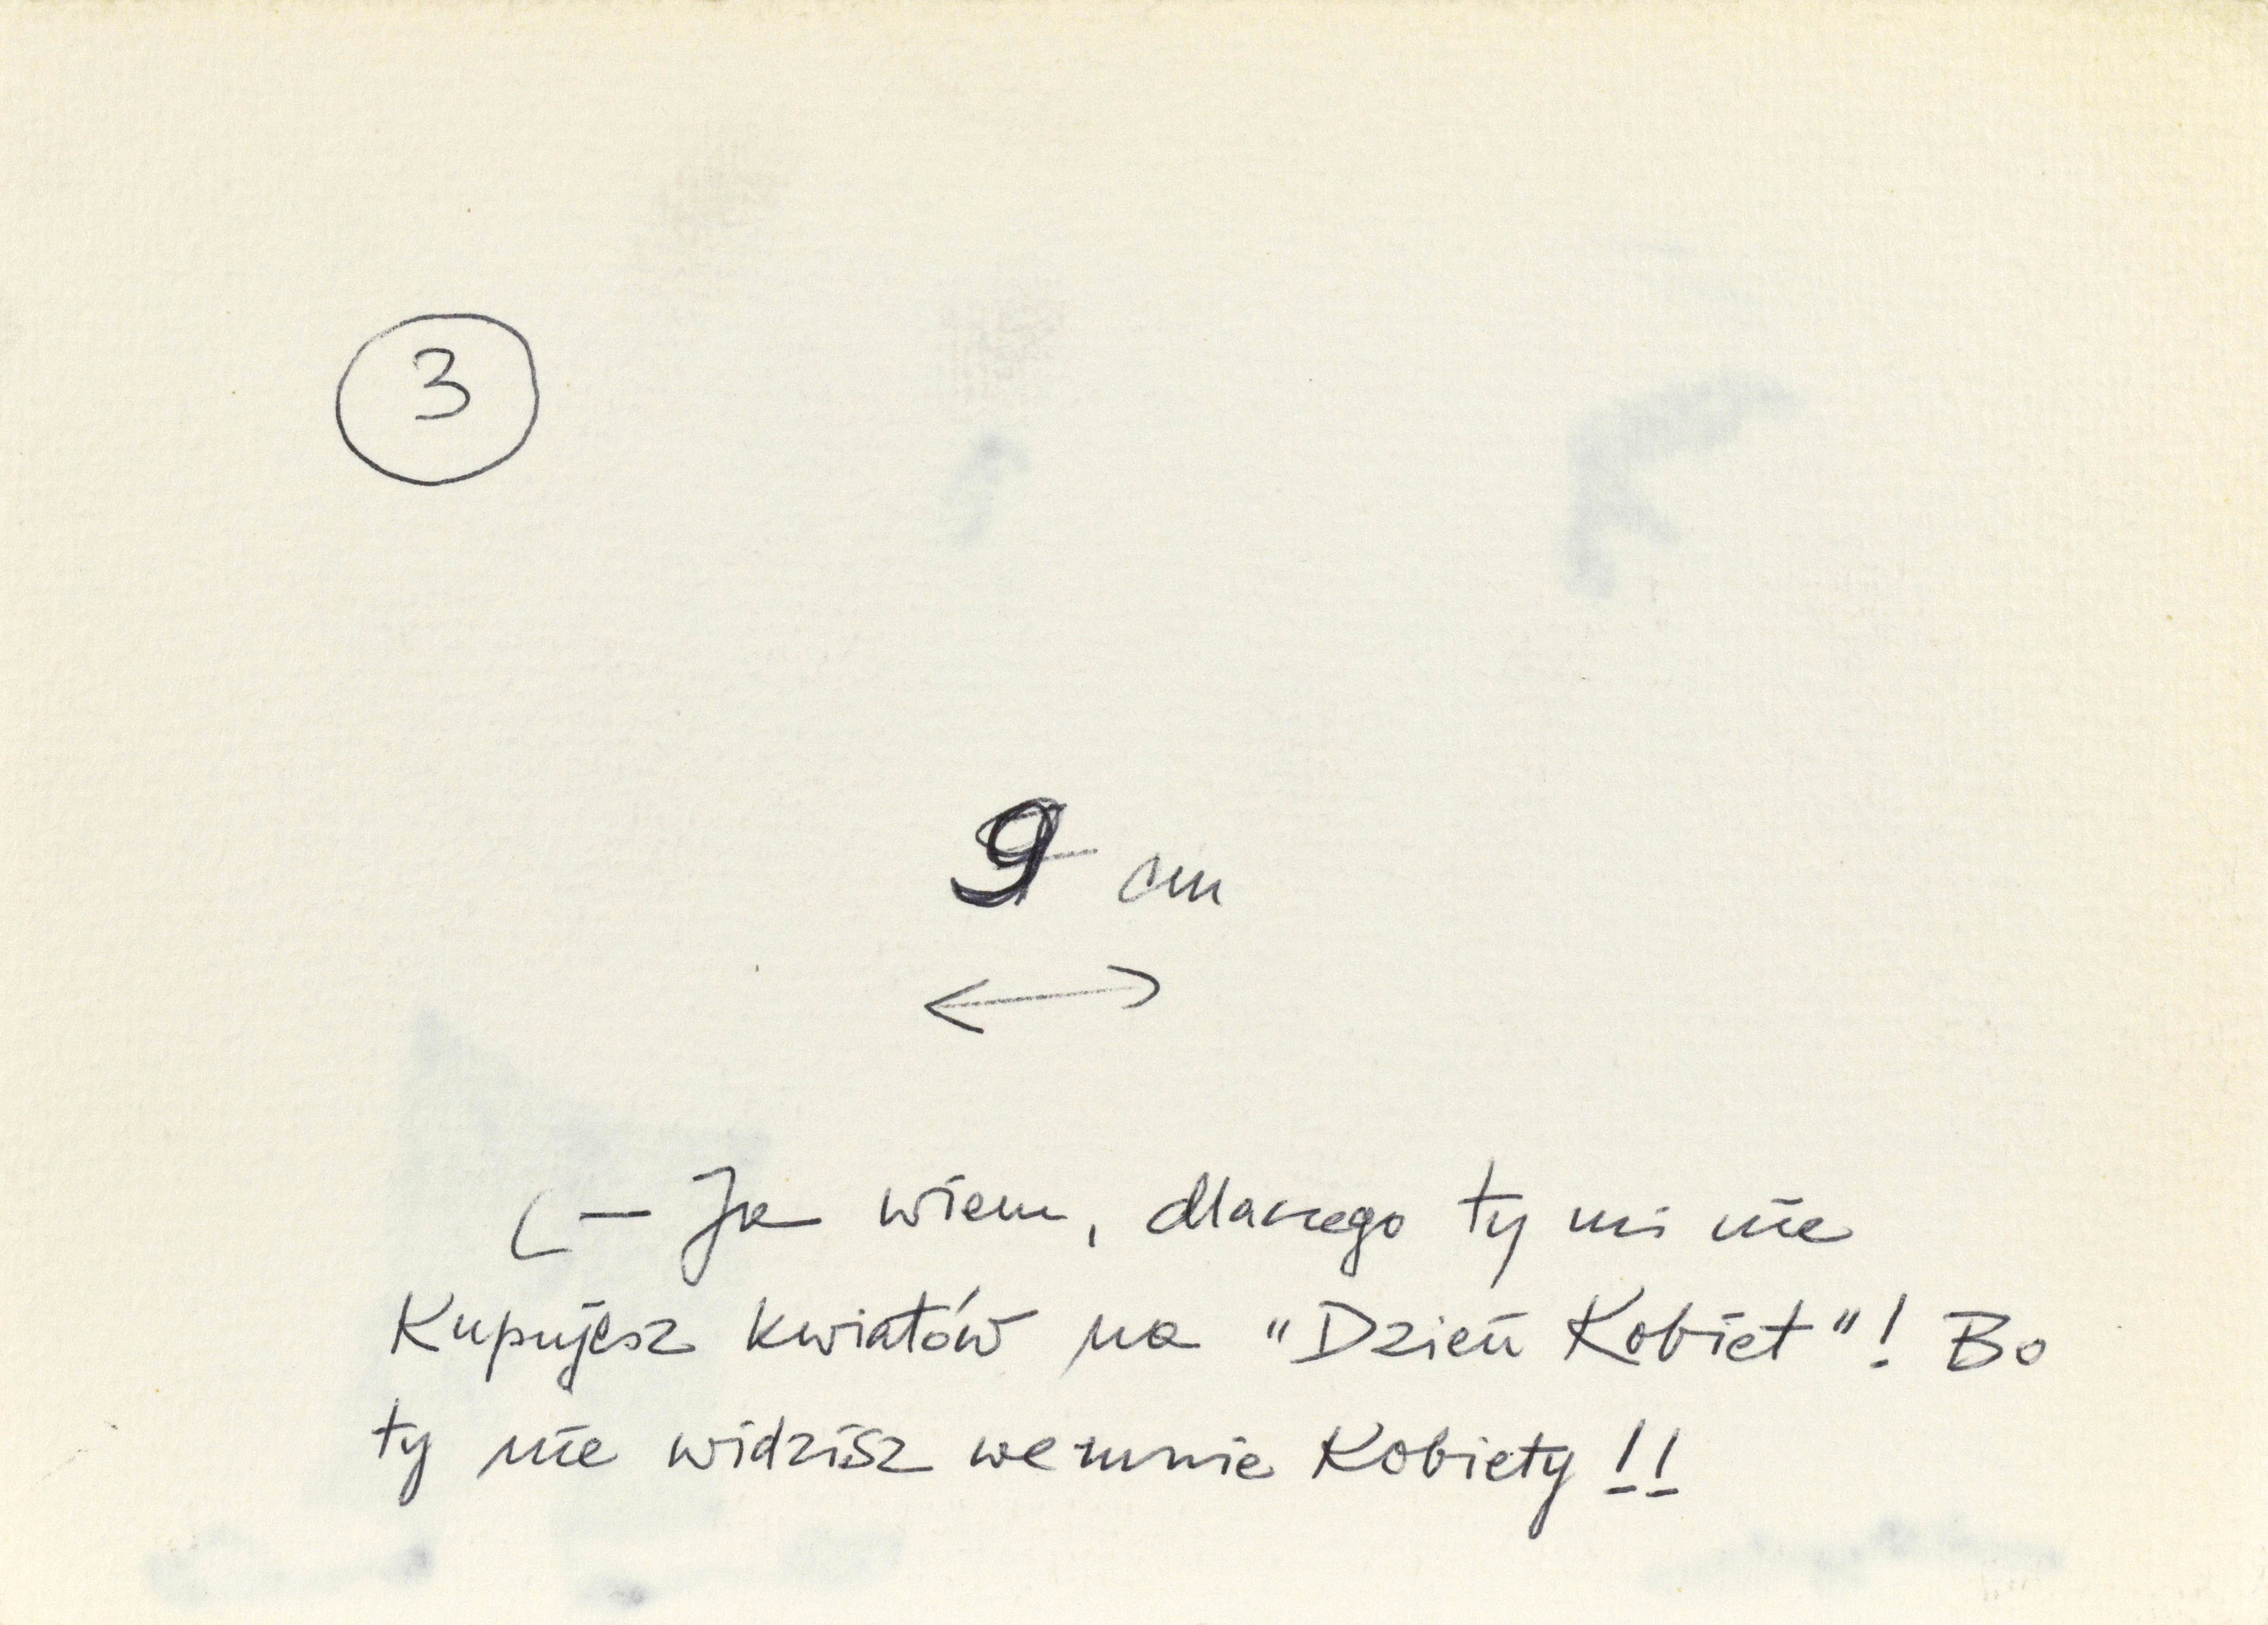 3
9 cm
— Ja wiem, dlaczego ty mi nie
Kupujesz kwiatów na "Dzień Kobiet"! Bo
ty nie widzisz we mnie Kobiety!!